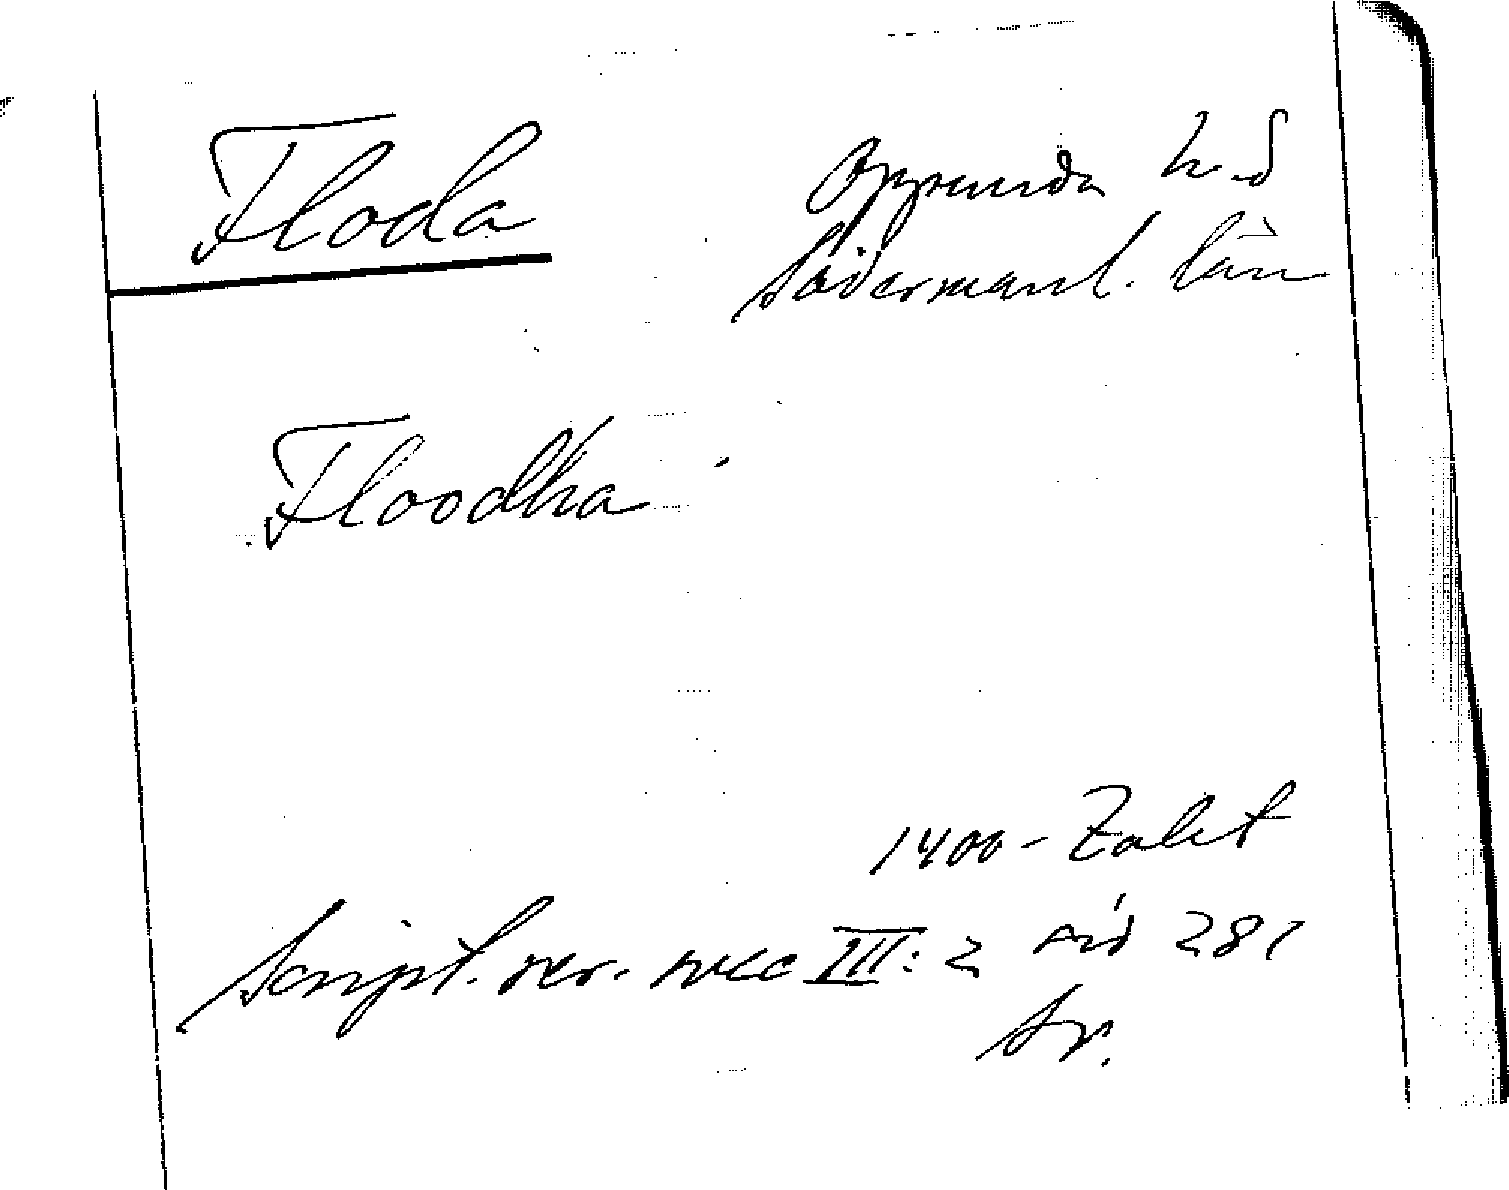 Floda Oppunda h-d
Södermanl. län
Floodha
1400-talet
Script. rer. svec III: 2 sid 281
Sv.